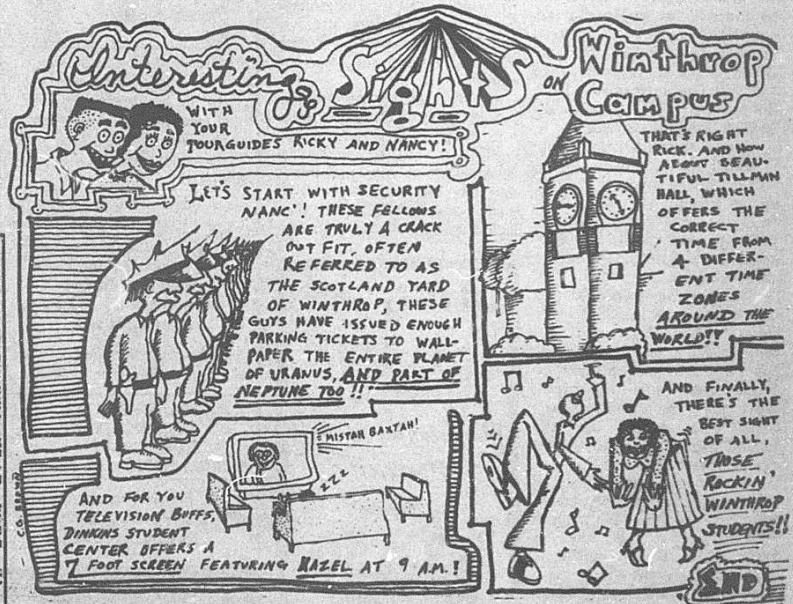 Interesting Sights ON Winthrop
Campus
WITH
YOUR
TOURGUIDES RICKY AND NANCY!
LET'S START WITH SECURITY
NANC'! THESE FELLOWS
ARE TRULY A CRACK
OUT FIT, OFTEN
REFERRED TO AS
THE SCOTLAND YARD
OF WINTHROP, THESE
GUYS HAVE ISSUED ENOUGH
PARKING TICKETS TO WALL-
PAPER THE ENTIRE PLANET
OF URANUS, AND PART OF
NEPTUNE TOO!!
THAT'S RIGHT
RICK. AND HOW
ABOUT BEAU-
TIFUL TILLMAN
HALL, WHICH
OFFERS THE
CORRECT
TIME FROM
4 DIFFER-
ENT TIME
ZONES
AROUND THE
WORLD!!
MISTAH BAXTAH!
ZZZ
AND FOR YOU
TELEVISION BUFFS,
DINKINS STUDENT
CENTER OFFERS A
7 FOOT SCREEN FEATURING HAZEL AT 9 A.M.!
AND FINALLY,
THERE'S THE
BEST SIGHT
OF ALL,
THOSE
ROCKIN'
WINTHROP
STUDENTS!!
END
C.G. BROWN